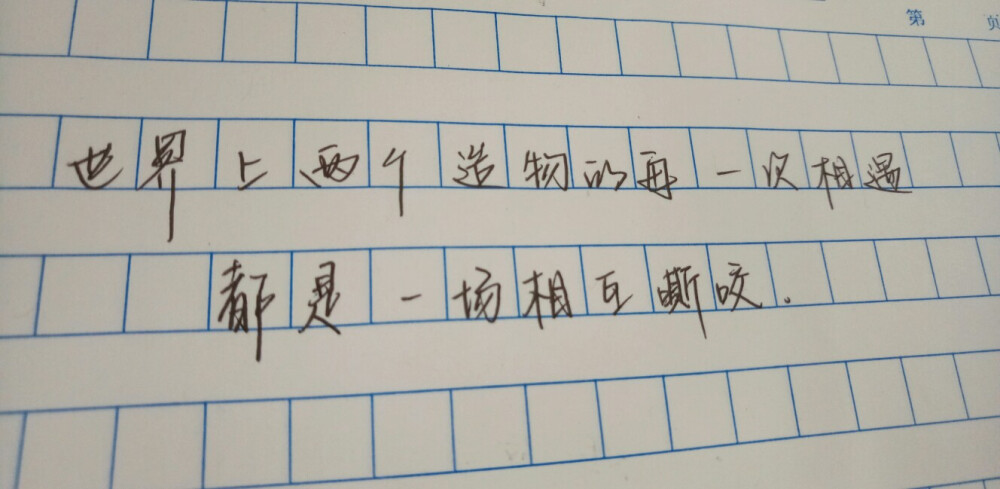 第 页
世界上两个造物的再一次相遇
都是一场相互嘶咬.